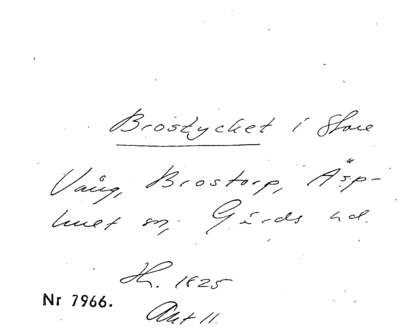 Brostycket i Store
Vång, Brostorp, Äsp-
huet sn, Gärds hd.
Sh. 1825
Nr 7966.
Akt 11.